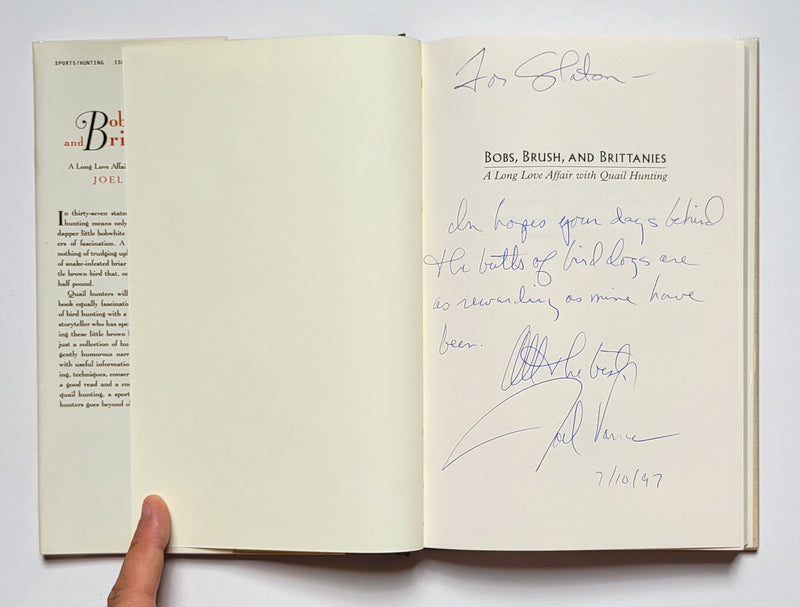 SPORTS/HUNTING
Bob
and Bri
A Long Love Affai
JOEL
In thirty-seven state
hunting means only
dapper little bobwhite
ers of fascination. A
nothing of trudging up
of snake-infested briar
tle brown bird that, o
half pound.
Quail hunters will
book equally fascinati
of bird hunting with a
storyteller who has spe
ing these little brown
just a collection of hu
gently humorous narr
with useful informatio
ing, techniques, conser
a good read and a co
quail hunting, a sport
hunters goes beyond o
For Slaton –
BOBS, BRUSH, AND BRITTANIES
A Long Love Affair with Quail Hunting
In hopes your days behind
the butts of bird dogs are
as rewarding as mine have
been.
All the best,
Joel Vance
7/10/97